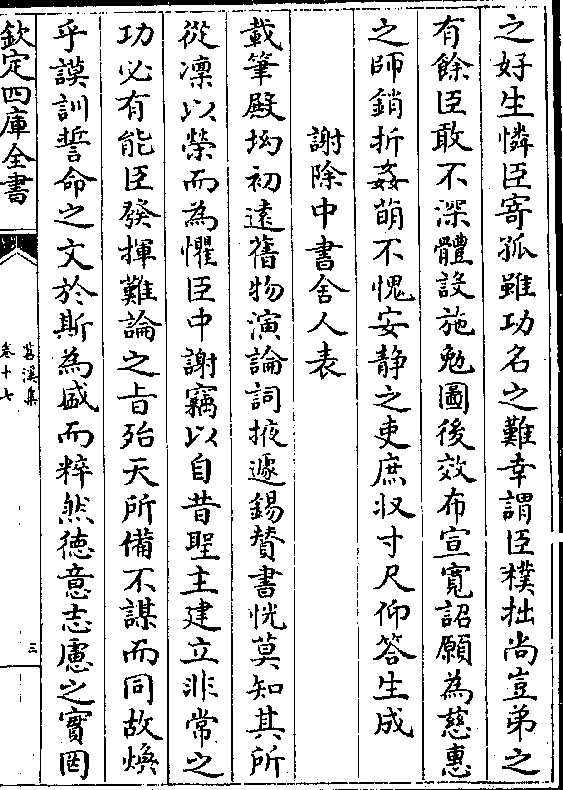 之好生憐臣寄孤雖功名之難幸謂臣樸拙尚豈弟之
有餘臣敢不深體設施勉圖後效布宣寛詔願為慈惠
之師銷折姦萌不愧安静之吏庶収寸尺仰答生成
謝除中書舍人表
載筆殿坳初遠舊物演論詞掖遽錫賛書恍莫知其所
從凛以榮而為懼臣中謝竊以自昔聖主建立非常之
功必有能臣發揮難論之旨殆天所備不謀而同故煥
乎謨訓誓命之文於斯為盛而粹然徳意志慮之實罔
欽定四庫全書
苕溪集
卷十七
三